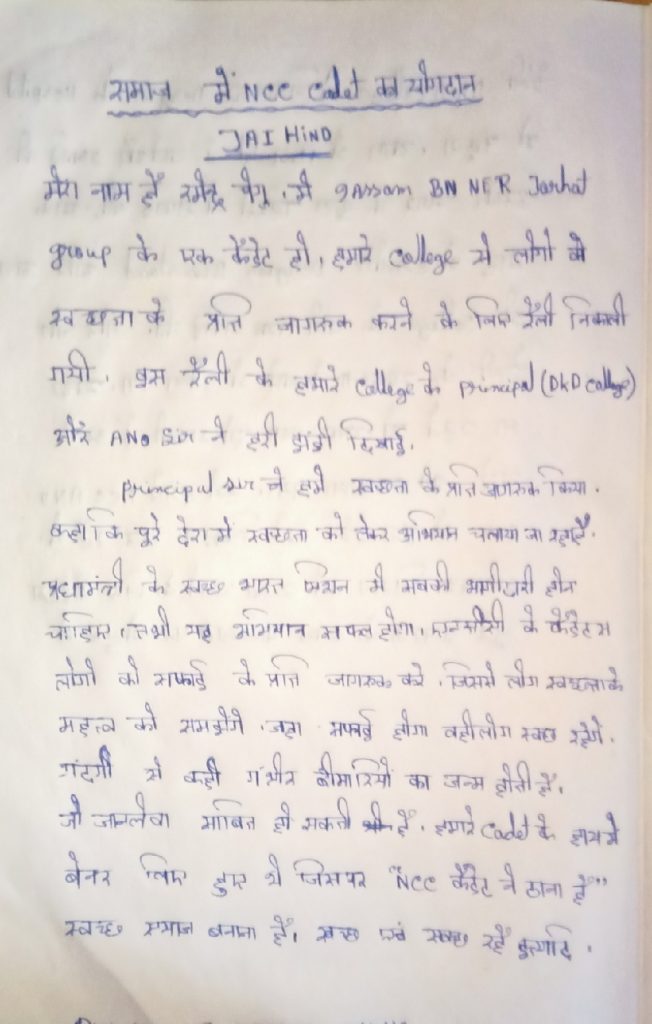 समाज में NCC Cadet का योगदान
JAI HIND
मेरा नाम हैं रमेन्द्र पेगु, मै 9 Assam BN NER Jorhat
group के एक कैंडेट हो, हमारे college से लोगो को
स्वच्छता के प्रति जागरुक करने के लिए रैंली निकाली
गायी. इस रैंली के हमारे college के principal (DKD college)
ओर ANO Sir ने हरी झंडी दिखाई.
principal sir ने हमे स्वच्छता के प्रति जागरुक किया.
कहा कि पूरे देश में स्वच्छता को लेकर अभियान चलाया जा रहा हैं.
प्रधामंत्री के स्वच्छ भारत मिशन में सबकी भागीदारी होन
चाहिए, तभी यह अभियान सफल होगा, एनसीसी के कैंडेटस
लोगो को सफाई के प्रति जागरुक करे. जिससे लोग स्वच्छता के
महत्व को समझेगे. जहा सफाई होगा वही लोग स्वच्छ रहेगे.
गंदगी से कही गंभीर बीमारियों का जन्म होती हैं.
जो जानलेवा साबित हो सकती हैं. हमारे Cadet के हाथ मे
बेनर लिए हुए थे जिसपर "NCC कैंडेट ने ठाना हैं"
स्वच्छ समाज बनाना हैं, स्वच्छ एवं स्वच्छ रहें इत्यादि.